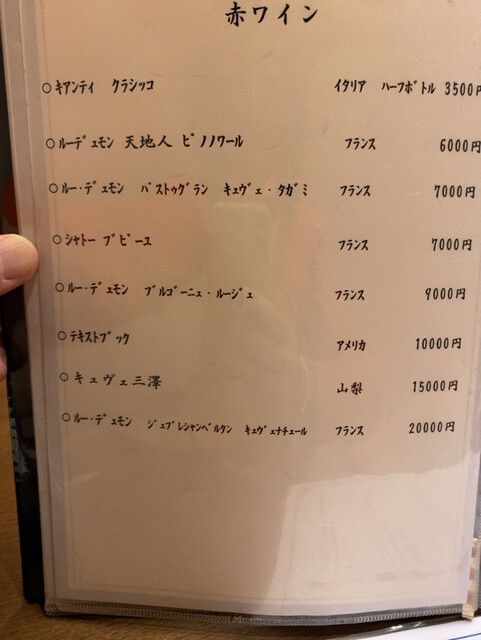 赤ワイン
○ｷｱﾝﾃｨ ｸﾗｼｯｺ イタリア ﾊｰﾌﾎﾞﾄﾙ 3500円
○ﾙｰﾃﾞｭﾓﾝ 天地人 ﾋﾟﾉﾉﾜｰﾙ フランス 6000円
○ﾙｰ･ﾃﾞｭﾓﾝ ﾊﾟｽﾄｩｸﾞﾗﾝ ｷｭｳﾞｪ･ﾀｶﾞﾐ フランス 7000円
○ｼｬﾄｰ ﾌﾟﾋﾟｰﾕ フランス 7000円
○ﾙｰ･ﾃﾞｭﾓﾝ ﾌﾞﾙｺﾞｰﾆｭ･ﾙｰｼﾞｭ フランス 9000円
○ﾃｷｽﾄﾌﾞｯｸ アメリカ 10000円
○キュヴェ三澤 山梨 15000円
○ﾙｰ･ﾃﾞｭﾓﾝ ｼﾞｭﾌﾞﾚｼｬﾝﾍﾞﾙﾀﾝ ｷｭｳﾞｪﾅﾁｭｰﾙ フランス 20000円